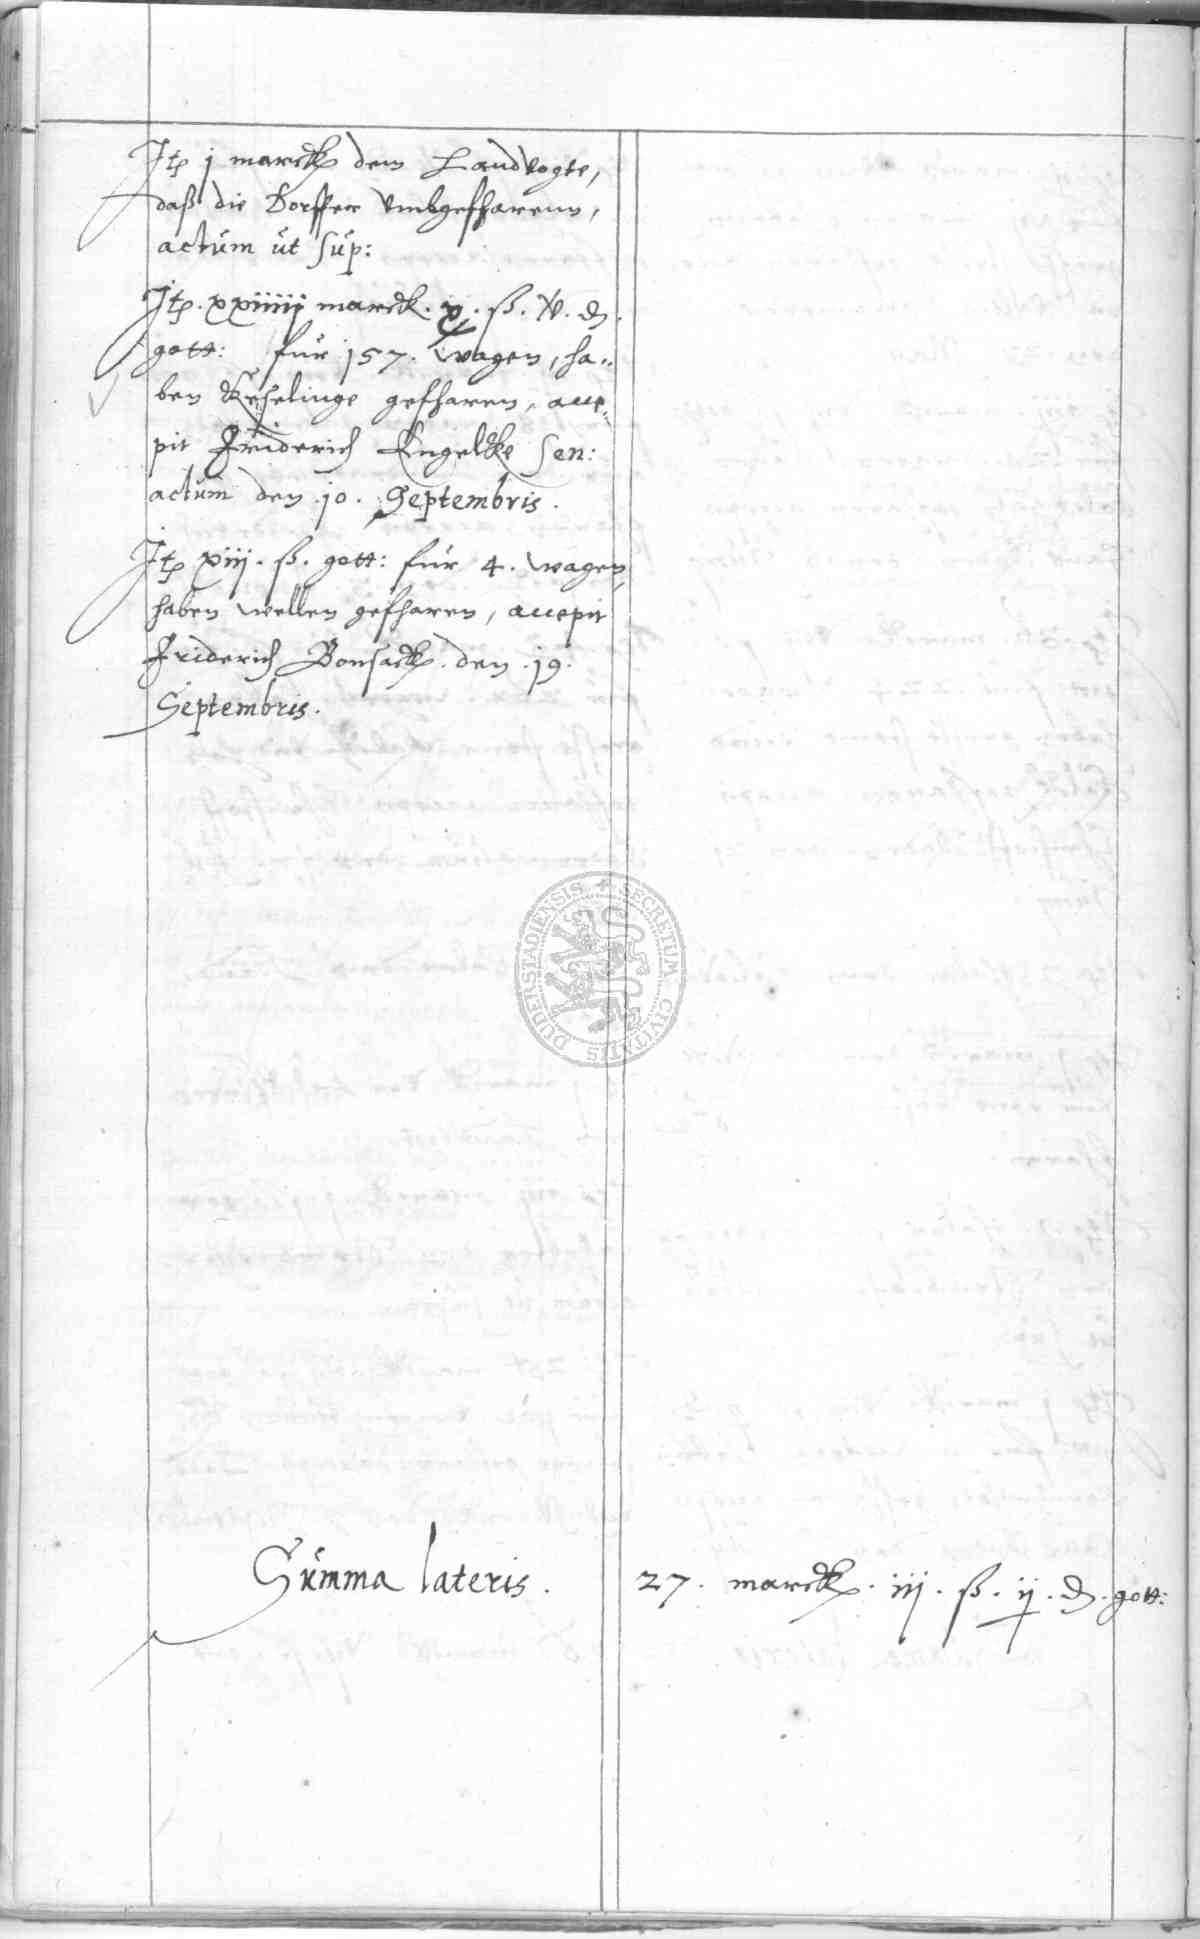 Itp j marck dem Landvogte,
daß die Dorffer vmbgefharenn,
actum ut sup:
Itp. xxiiiij marck. x. ß. v. d.
gott: fur 157. wagen, ha-
ben Keselinge gefharen, acce-
pit Friderich Engelcke sen:
actum den .10. Septembris.
Itp xiij. ß. gott: fur 4. wagen,
haben wellen gefharen, accepit
Friderich Bonsack. den .19.
Septembris.
DUDERSTADIENSIS + SECRETUM CIVITATIS
Summa lateris. 27. marck. iij. ß. ij. d. gott: